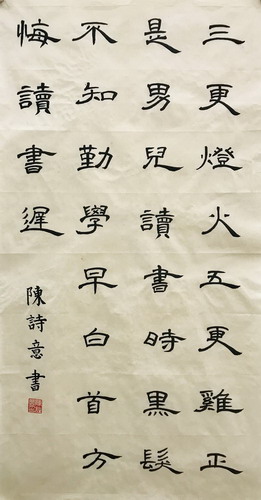 三更燈火五更雞正
是男兒讀書時黑髮
不知勤學早白首方
悔讀書遲
陳詩意書